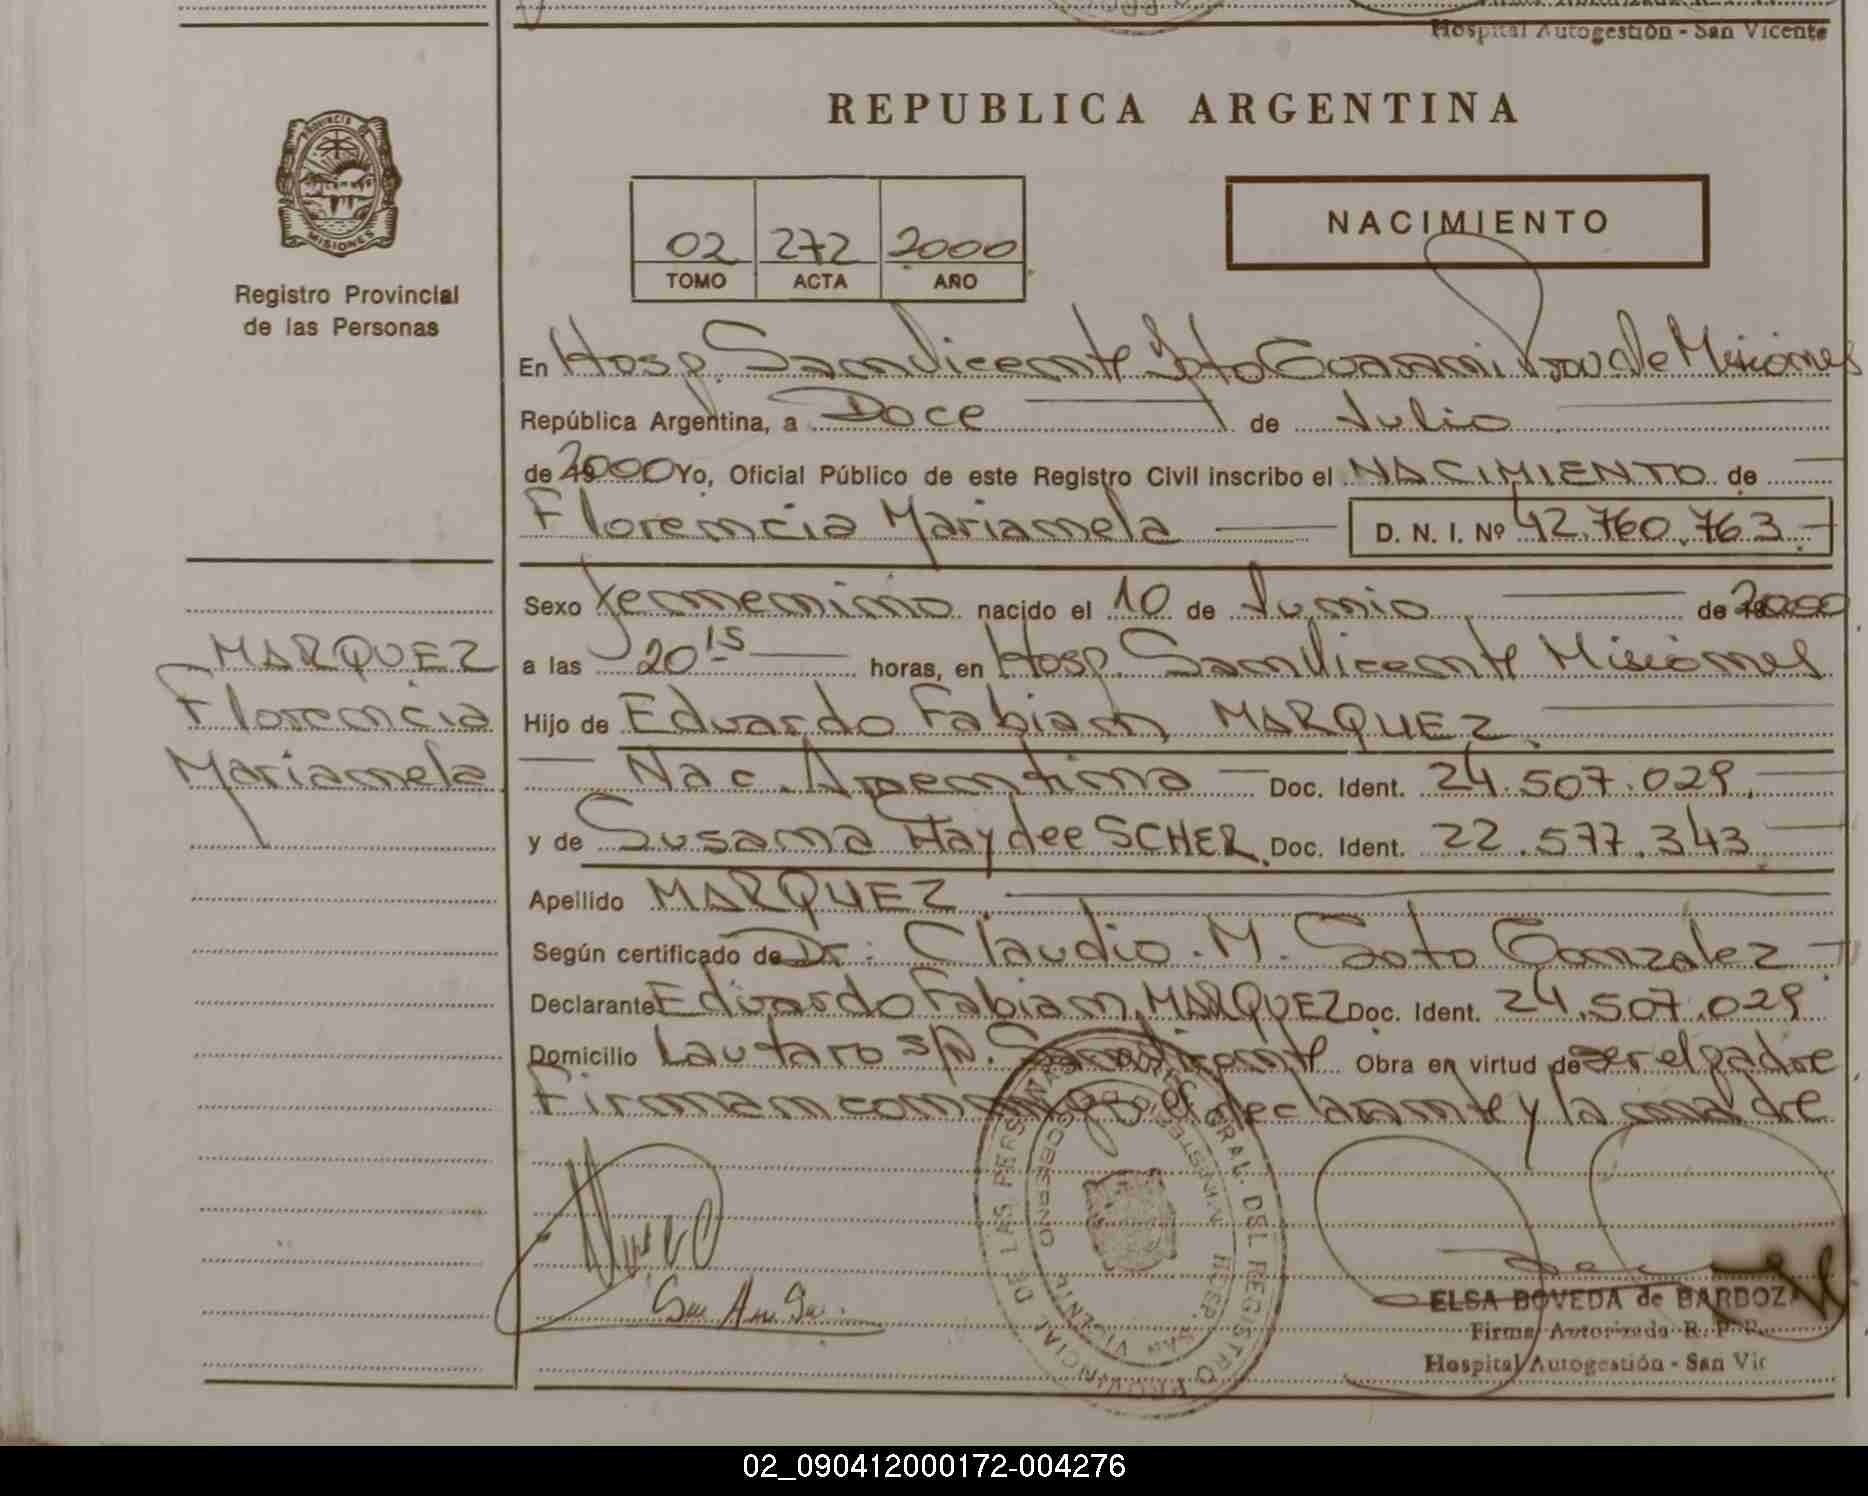 Hospital Autogestión - San Vicente
REPUBLICA ARGENTINA
PROVINCIA
MISIONES
Registro Provincial
de las Personas
02 272 2000
TOMO ACTA AÑO
NACIMIENTO
En Hosp. San Vicente Dpto Guarani Prov de Misiones
República Argentina, a Doce de Julio
de 2000 Yo, Oficial Público de este Registro Civil inscribo el NACIMIENTO de
Florencia Marianela D. N. I. Nº 42.760.763
Sexo Femenino nacido el 10 de Junio de 2000
a las 20 15 horas, en Hosp. San Vicente Misiones
Hijo de Eduardo Fabian MARQUEZ
Nac. Argentina Doc. Ident. 24.507.029
y de Susana Haydee SCHER Doc. Ident. 22.577.343
Apellido MARQUEZ
Según certificado de Dr: Claudio M. Soto Gonzalez
Declarante Eduardo Fabian MARQUEZ Doc. Ident. 24.507.029
Domicilio Lautaro s/n. San Vicente Obra en virtud de ser el padre
Firman conmigo el declarante y la madre
MARQUEZ
Florencia
Marianela
ELSA BOVEDA de BARDOZA
Firma Autorizada R. P. P.
Hospital Autogestión - San Vic
02_090412000172-004276